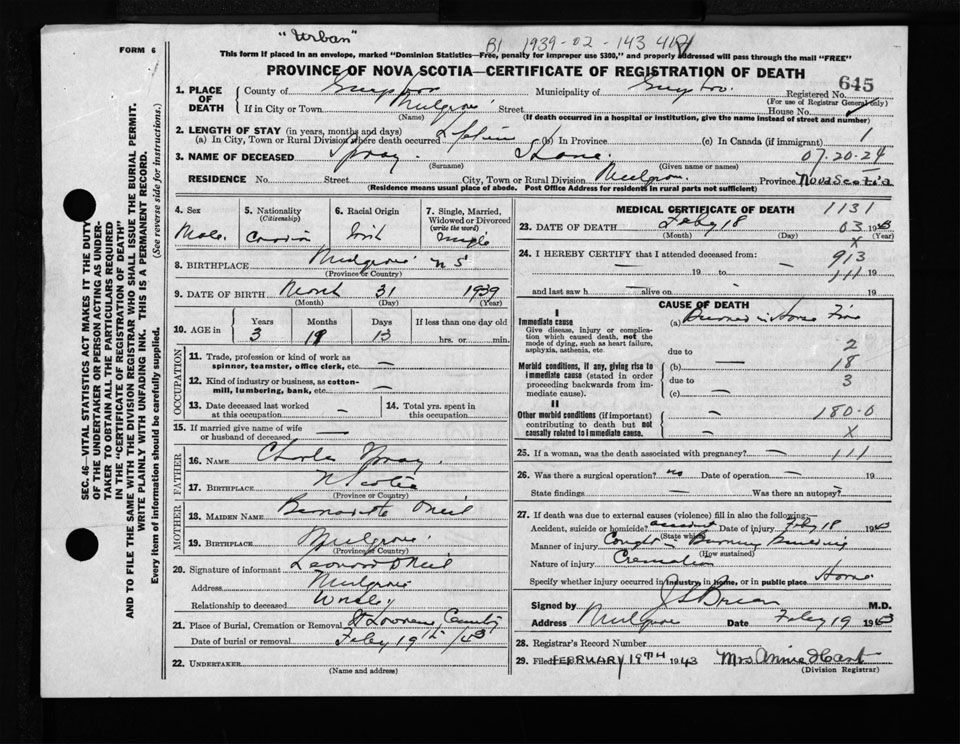 "Urban"
B1 1939-02-143 418
FORM 6
This form if placed in an envelope, marked "Dominion Statistics—Free, penalty for improper use $300," and properly addressed will pass through the mail "FREE"
PROVINCE OF NOVA SCOTIA—CERTIFICATE OF REGISTRATION OF DEATH
645
1. PLACE OF DEATH
County of Guysboro Municipality of Guysboro Registered No.
(For use of Registrar General only)
If in City or Town Mulgrave Street House No.
(Name) (If death occurred in a hospital or institution, give the name instead of street and number)
2. LENGTH OF STAY (in years, months and days)
(a) In City, Town or Rural Division where death occurred Lifetime (b) In Province (c) In Canada (if immigrant) 1
3. NAME OF DECEASED Spray 07-20-24
(Surname) (Given name or names) 1
RESIDENCE No. Street City, Town or Rural Division Mulgrave Province Nova Scotia
(Residence means usual place of abode. Post Office Address for residents in rural parts not sufficient)
SEC. 46—VITAL STATISTICS ACT MAKES IT THE DUTY
OF THE UNDERTAKER OR PERSON ACTING AS UNDER-
TAKER TO OBTAIN ALL THE PARTICULARS REQUIRED
IN THE "CERTIFICATE OF REGISTRATION OF DEATH"
AND TO FILE THE SAME WITH THE DIVISION REGISTRAR WHO SHALL ISSUE THE BURIAL PERMIT.
WRITE PLAINLY WITH UNFADING INK. THIS IS A PERMANENT RECORD.
Every item of information should be carefully supplied. (See reverse side for instructions.)
4. Sex
Male
5. Nationality
(Citizenship)
Canadian
6. Racial Origin
Irish
7. Single, Married,
Widowed or Divorced
(write the word)
Single
8. BIRTHPLACE Mulgrave N S
(Province or Country)
9. DATE OF BIRTH March 31 1939
(Month) (Day) (Year)
10. AGE in
Years Months Days If less than one day old
3 13 hrs. or min.
OCCUPATION
11. Trade, profession or kind of work as
spinner, teamster, office clerk, etc. —
12. Kind of industry or business, as cotton-
mill, lumbering, bank, etc. —
13. Date deceased last worked
at this occupation —
14. Total yrs. spent in
this occupation
15. If married give name of wife
or husband of deceased —
FATHER
16. NAME Charles Spray
17. BIRTHPLACE N Scotia
(Province or Country)
MOTHER
18. MAIDEN NAME Bernadette O'Neil
19. BIRTHPLACE Mulgrave
(Province or Country)
20. Signature of informant Leonard O'Neil
Address Mulgrave
Relationship to deceased Uncle
21. Place of Burial, Cremation or Removal St Lawrence Cemetery
Date of burial or removal Feby 19th /43
22. UNDERTAKER
(Name and address)
MEDICAL CERTIFICATE OF DEATH 1131
23. DATE OF DEATH Feby 18 03 1943
(Month) (Day) (Year)
X
24. I HEREBY CERTIFY that I attended deceased from: 913
— 19 to — 111 19
and last saw h — alive on — 19
CAUSE OF DEATH
I
Immediate cause
Give disease, injury or complica-
tion which caused death, not the
mode of dying, such as heart failure,
asphyxia, asthenia, etc.
(a) Burned in House Fire
due to — 2
Morbid conditions, if any, giving rise to
immediate cause (stated in order
proceeding backwards from im-
mediate cause).
(b) — 18
due to 3
(c) —
II
Other morbid conditions (if important)
contributing to death but not
causally related to immediate cause.
— 180-0
— X
25. If a woman, was the death associated with pregnancy? — 111
26. Was there a surgical operation? no Date of operation — 19
State findings — Was there an autopsy? —
27. If death was due to external causes (violence) fill in also the following:
Accident, suicide or homicide? accident Date of injury Feby 18 1943
(State which)
Manner of injury Caught in Burning Building
(How sustained)
Nature of injury Cremation
Specify whether injury occurred in industry, in home, or in public place Home
Signed by M.D.
Address Mulgrave Date Feby 19 1943
28. Registrar's Record Number
29. Filed FEBRUARY 19TH 1943 Mrs. Annie Hart
(Division Registrar)